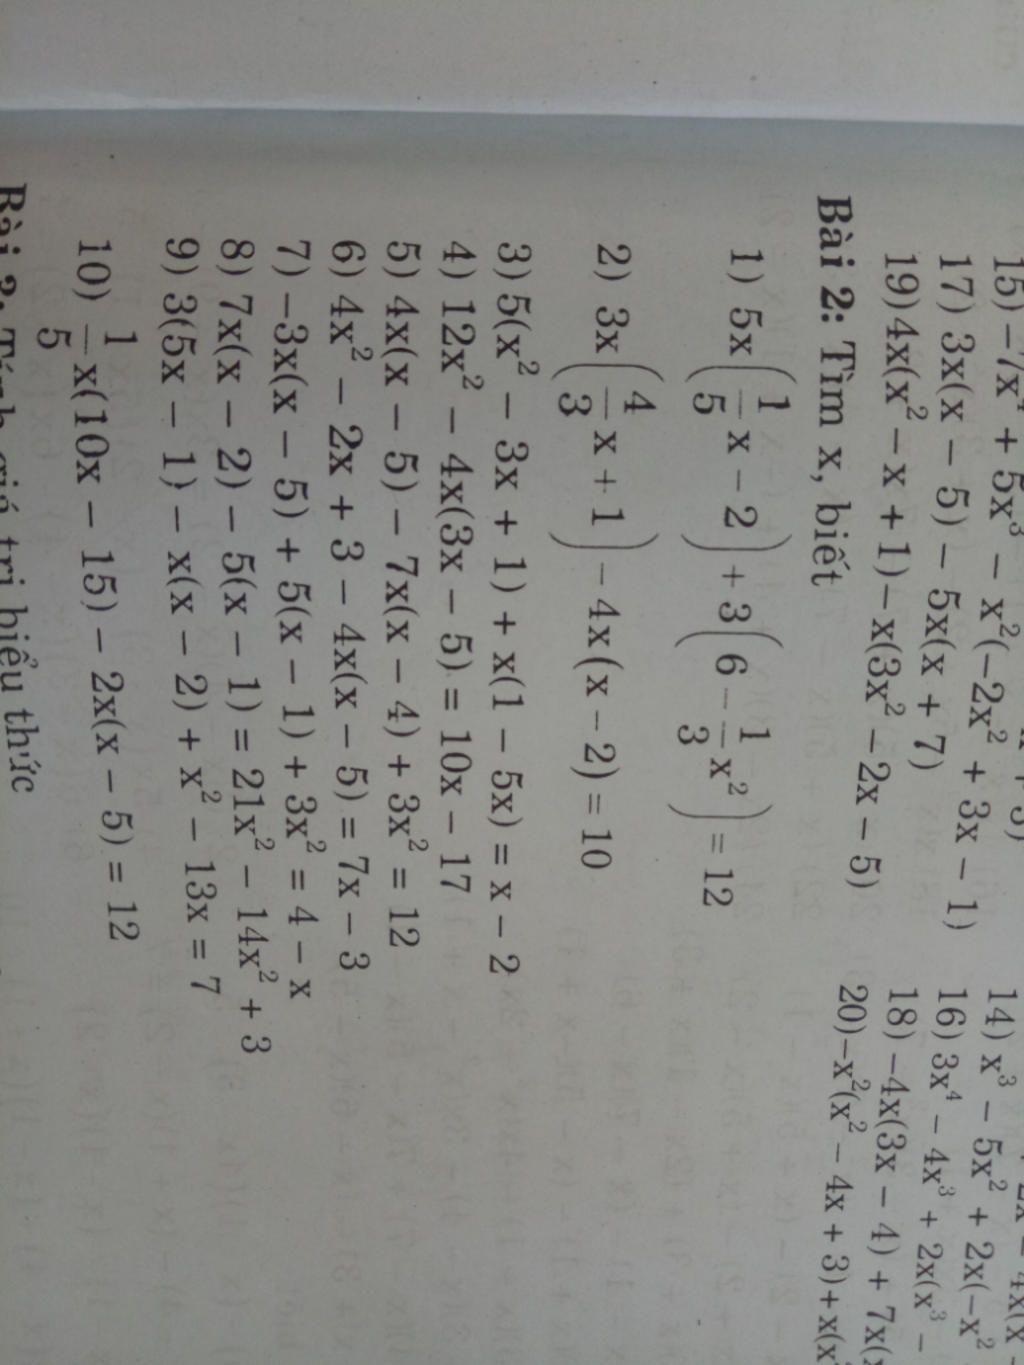 15) −7x⁴ + 5x³ − x²(−2x² + 3x − 1)
17) 3x(x − 5) − 5x(x + 7)
19) 4x(x² − x + 1) − x(3x² − 2x − 5)
14) x³ − 5x² + 2x(−x²
16) 3x⁴ − 4x³ + 2x(x³ −
18) −4x(3x − 4) + 7x(
20) −x²(x² − 4x + 3) + x(x
Bài 2: Tìm x, biết
1) 5x(1/5 x − 2) + 3(6 − 1/3 x²) = 12
2) 3x(4/3 x + 1) − 4x(x − 2) = 10
3) 5(x² − 3x + 1) + x(1 − 5x) = x − 2
4) 12x² − 4x(3x − 5) = 10x − 17
5) 4x(x − 5) − 7x(x − 4) + 3x² = 12
6) 4x² − 2x + 3 − 4x(x − 5) = 7x − 3
7) −3x(x − 5) + 5(x − 1) + 3x² = 4 − x
8) 7x(x − 2) − 5(x − 1) = 21x² − 14x² + 3
9) 3(5x − 1) − x(x − 2) + x² − 13x = 7
10) 1/5 x(10x − 15) − 2x(x − 5) = 12
Bài 3: Tính giá trị biểu thức